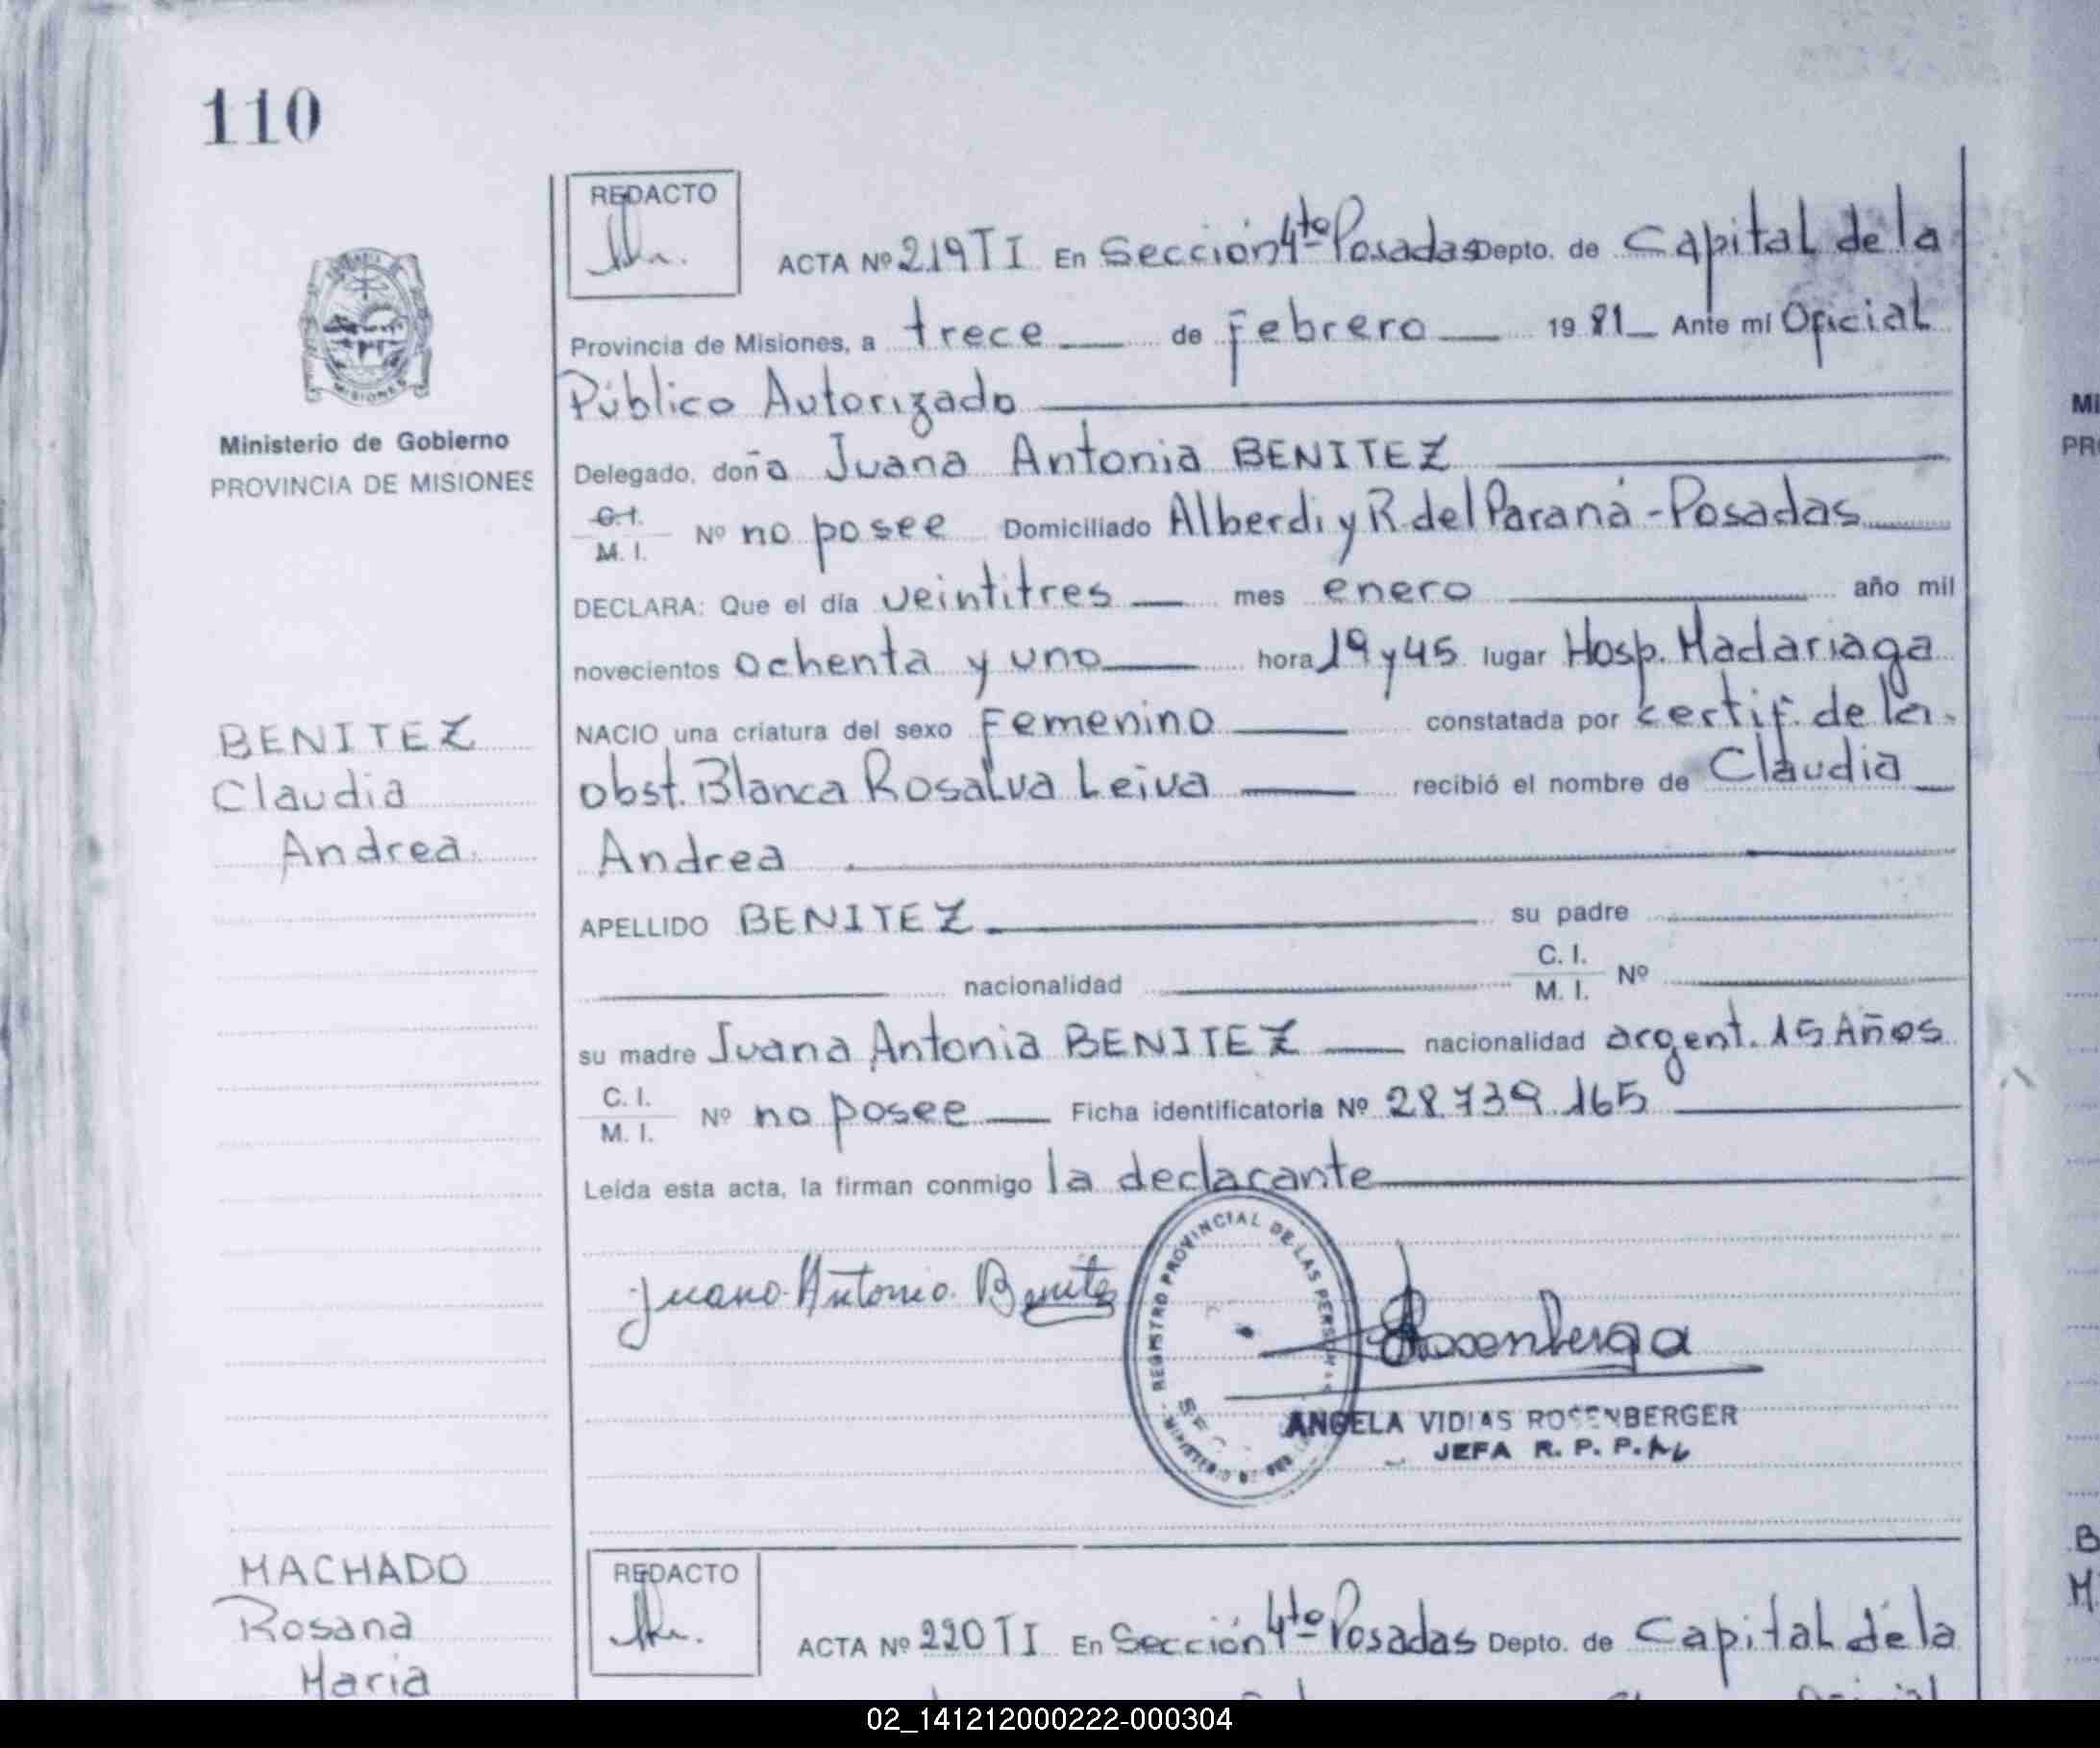 110
REDACTO
ACTA Nº 219 T I En Sección 4to Posadas Depto. de Capital de la
Provincia de Misiones, a trece de Febrero 19 81 Ante mi Oficial
Público Autorizado
Ministerio de Gobierno
PROVINCIA DE MISIONES
Delegado, doña Juana Antonia BENITEZ
C.I.
M. I. Nº no posee Domiciliado Alberdi y R. del Paraná - Posadas
DECLARA: Que el día veintitres mes enero año mil
novecientos ochenta y uno hora 19 y 45 lugar Hosp. Madariaga
BENITEZ
Claudia
Andrea
NACIO una criatura del sexo Femenino constatada por certif. de la
obst. Blanca Rosalva Leiva recibió el nombre de Claudia
Andrea
APELLIDO BENITEZ su padre
nacionalidad C. I.
M. I. Nº
su madre Juana Antonia BENITEZ nacionalidad argent. 15 Años
C. I.
M. I. Nº no posee Ficha identificatoria Nº 28.739.165
Leída esta acta, la firman conmigo la declarante
Juana Antonia Benitez
REGISTRO PROVINCIAL DE LAS PERSONAS
Rosenberga
ANGELA VIDIAS ROSENBERGER
JEFA R. P. P.
MACHADO
Rosana
Maria
REDACTO
ACTA Nº 220 T I En Sección 4to Posadas Depto. de Capital de la
02_141212000222-000304